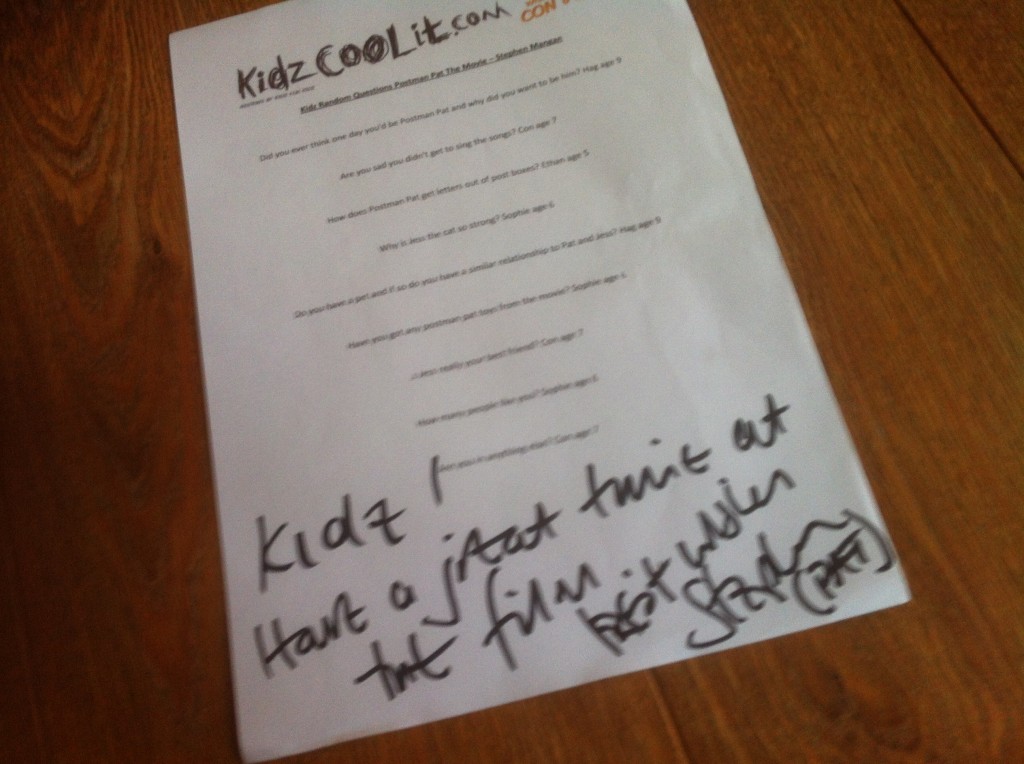 KidzCOOLit.com
CON
Kidz Random Questions Postman Pat The Movie – Stephen Mangan
Did you ever think one day you'd be Postman Pat and why did you want to be him? Hag age 9
Are you sad you didn't get to sing the songs? Con age 7
How does Postman Pat get letters out of post boxes? Ethan age 5
Why is Jess the cat so strong? Sophie age 6
Do you have a pet and if so do you have a similar relationship to Pat and Jess? Hag age 9
Have you got any postman pat toys from the movie? Sophie age 6
Is Jess really your best friend? Con age 7
How many people like you? Sophie age 6
Are you in anything else? Con age 7
Kidz !
Have a great time at
the film
best wishes
Stephen
(PAT)